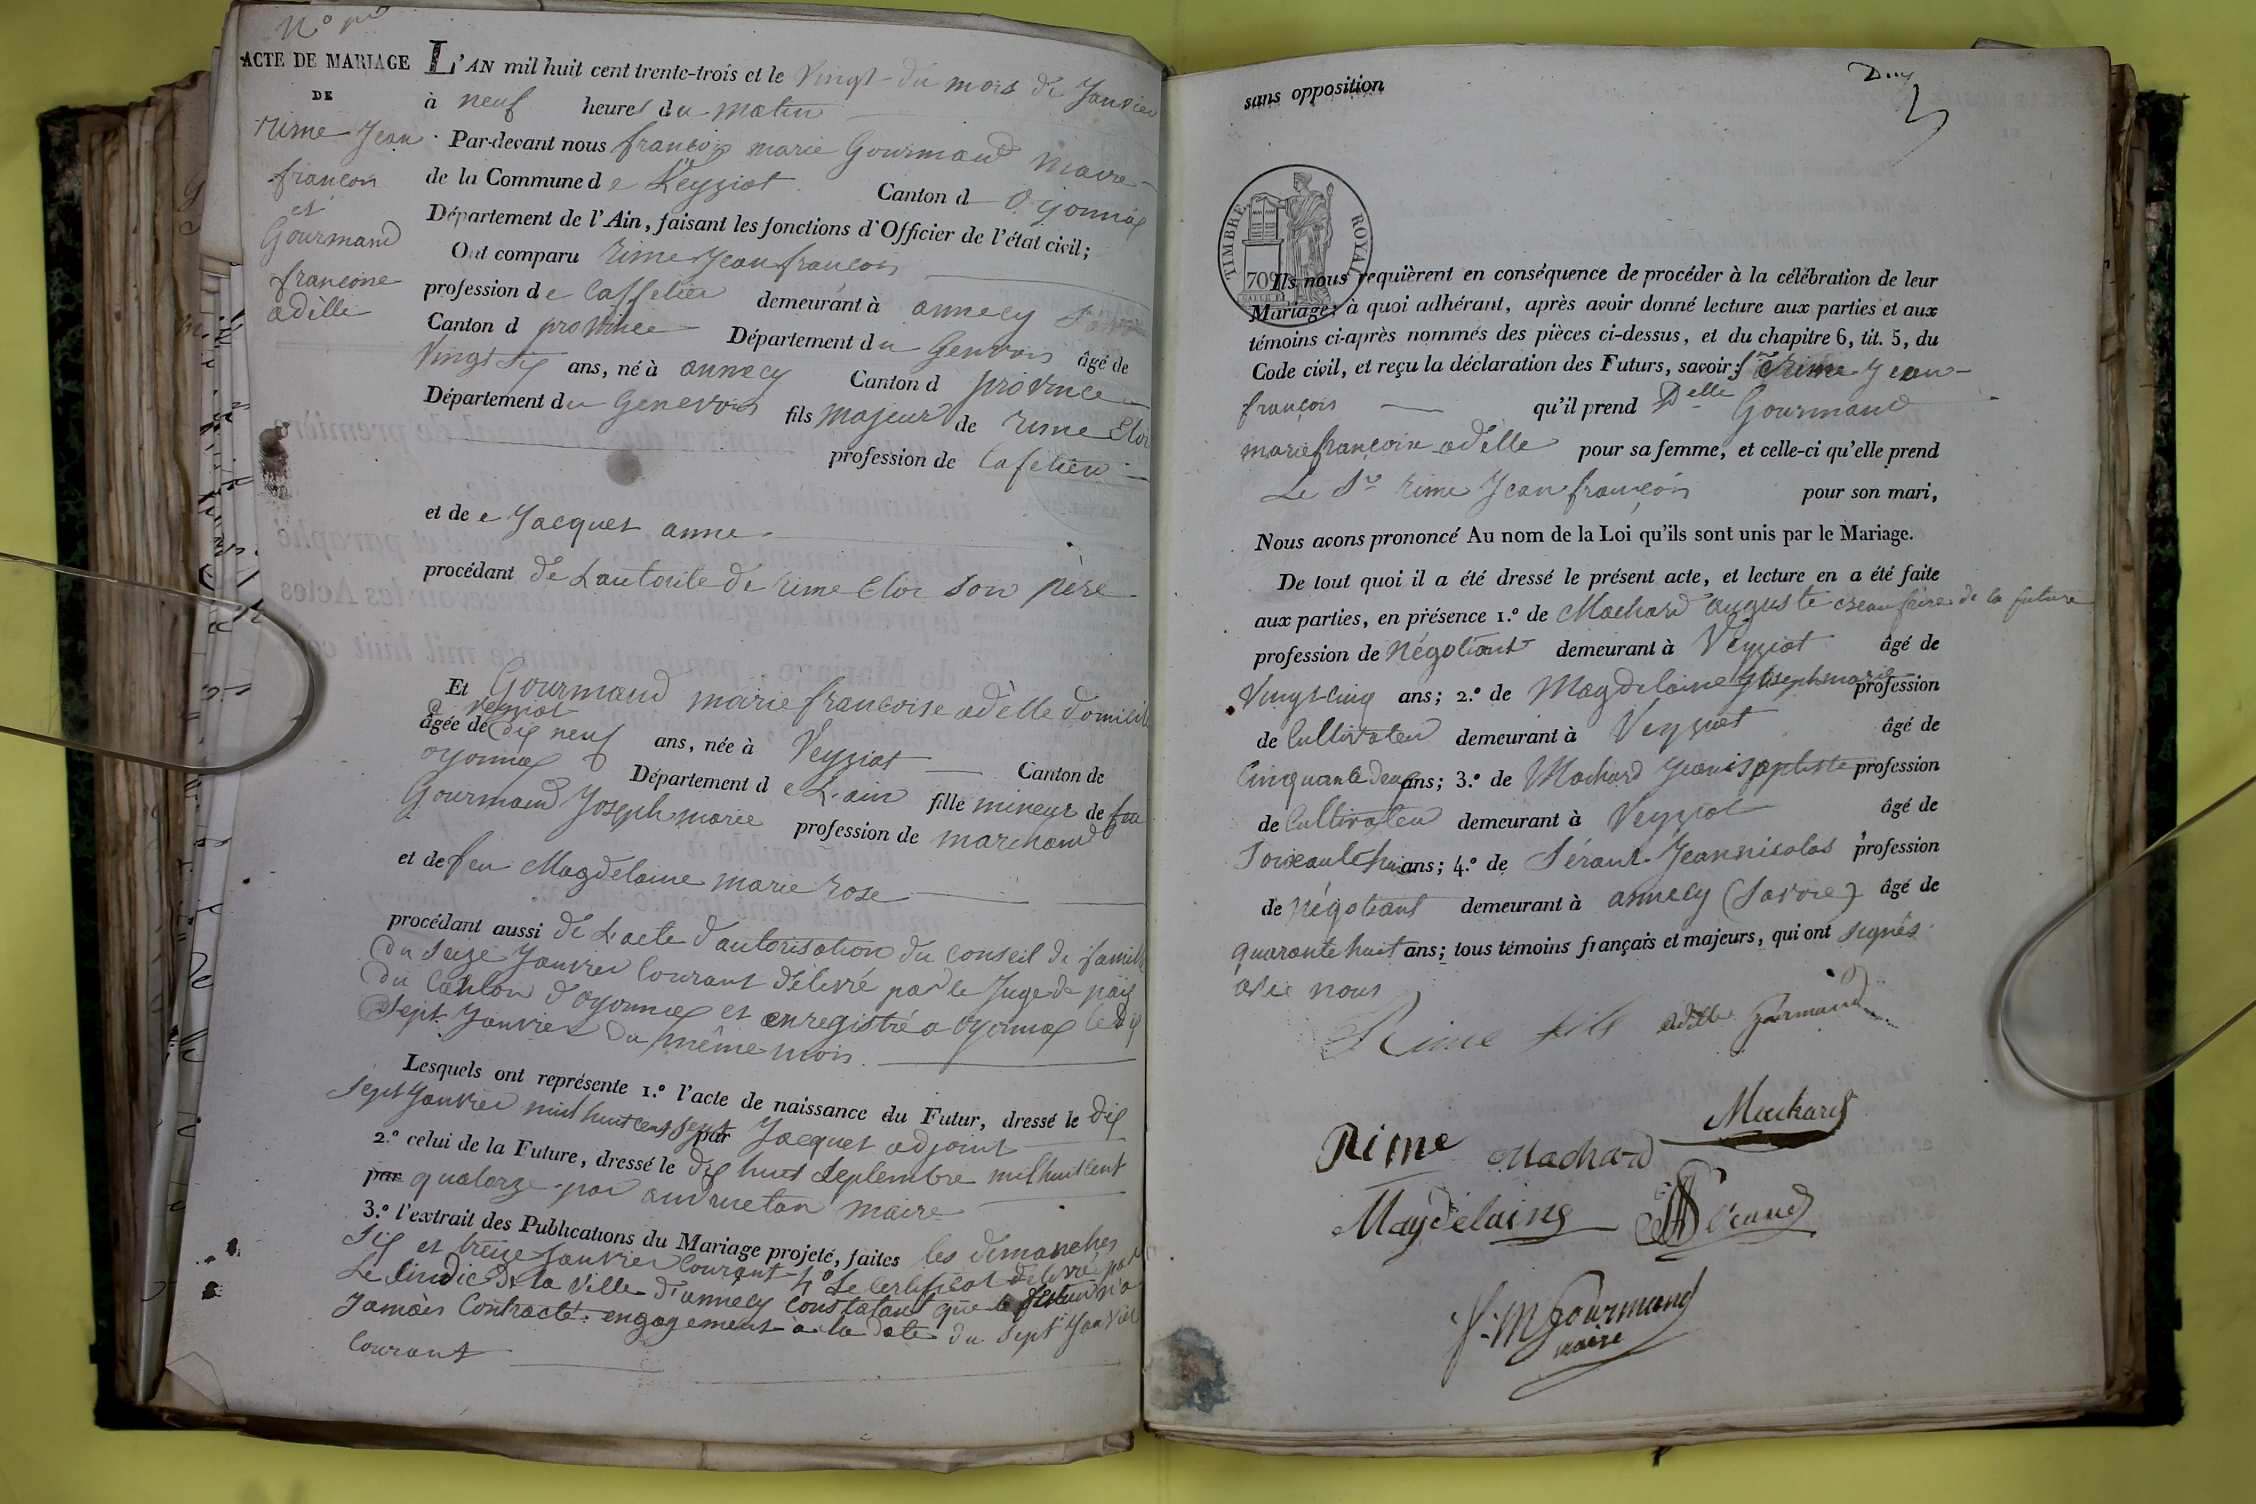 N.o
ACTE DE MARIAGE
DE
rime Jean
françois
et
Gourmand
françoise
adèlle
L'AN mil huit cent trente-trois et le Vingt du mois de Janvier
à neuf heures du matin
Par-devant nous françois marie Gourmand maire
de la Commune de Veyziat Canton d Oyonnax
Département de l'Ain, faisant les fonctions d'Officier de l'état civil;
Ont comparu rime Jean françois
profession de Caffetier demeurant à annecy
Canton d province Département du Genevois âgé de
Vingt Six ans, né à annecy Canton d province
Département du Genevois fils majeur de rime Eloi
profession de Cafetier
et de Jacquet anne
procédant de L'autorité de rime Eloi son père
Et Gourmand marie françoise adèlle domicilié
à Veyziat
âgée de dix neuf ans, née à Veyziat Canton de
oyonnax Département de L'ain fille mineur de feu
Gourmand Joseph marie profession de marchand
et de feu Magdelaine marie rose
procédant aussi de L'acte d'autorisation du conseil de famille
du Seize Janvier Courant délivré par le Juge de paix
du Canton d'oyonnax et enregistré a oyonnax le dix
Sept Janvier du même mois
Lesquels ont représente 1.º l'acte de naissance du Futur, dressé le dix
Sept Janvier mil huit cent Sept par Jacquet adjoint
2.º celui de la Future, dressé le dix huit Septembre mil huit cent
par quatorze par maire
3.º l'extrait des Publications du Mariage projeté, faites les dimanches
Six et treize Janvier Courant 4º Le Certificat délivré par
Le Sindic de la Ville d'annecy Constatant que le futur n'a
Jamais Contracté engagement à la date du Sept Janvier
Courant
sans opposition
Deux
TIMBRE ROYAL
709
Ils nous requièrent en conséquence de procéder à la célébration de leur
Mariage; à quoi adhérant, après avoir donné lecture aux parties et aux
témoins ci-après nommés des pièces ci-dessus, et du chapitre 6, tit. 5, du
Code civil, et reçu la déclaration des Futurs, savoir; Rime Jean
françois qu'il prend Delle Gourmand
marie françoise adèlle pour sa femme, et celle-ci qu'elle prend
Le Sr rime Jean françois pour son mari,
Nous avons prononcé Au nom de la Loi qu'ils sont unis par le Mariage.
De tout quoi il a été dressé le présent acte, et lecture en a été faite
aux parties, en présence 1.º de Machard auguste beau frère de la future
profession de Négotiant demeurant à Veyziat âgé de
Vingt-Cinq ans; 2.º de Magdelaine Joseph marie profession
de Cultivateur demeurant à Veyziat âgé de
Cinquante deux ans; 3.º de Machard Jean Baptiste profession
de Cultivateur demeurant à Veyziat âgé de
Soixante huit ans; 4.º de Jean nicolas profession
de Négotiant demeurant à annecy (Savoie) âgé de
quarante huit ans; tous témoins français et majeurs, qui ont signés
avec nous
Rime fils adelle Gourmand
Machard
Rime Machard
Magdelaine
f. m Gourmand
maire